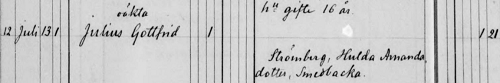 oäkta
hᵒⁿ gifte 16 år.
12 Juli 13 1 Julius Gottfrid 1 1 21
Strömberg, Hulda Amanda,
dotter, Smedbacka.